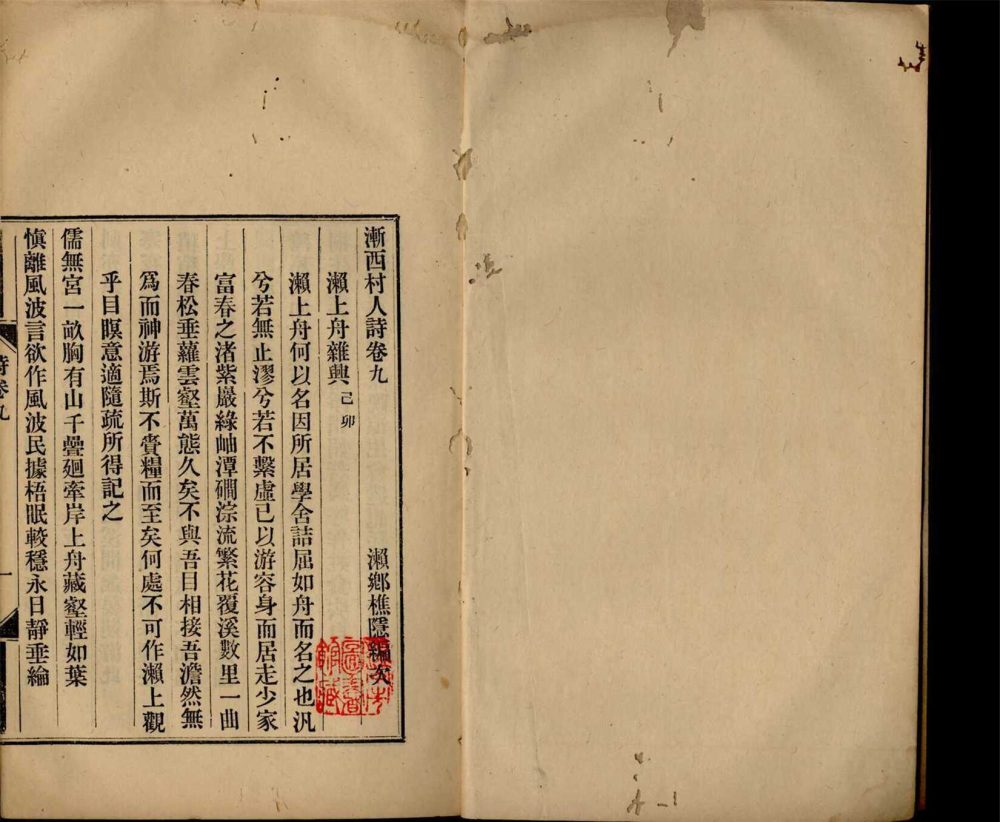 漸西村人詩卷九
瀨鄉樵隱編矣
瀨上舟雜興 己卯
瀨上舟何以名因所居學舍詰屈如舟而名之也汎
兮若無止漻兮若不繫虛已以游容身而居走少家
富春之渚紫巖綠岫潭磵淙流繁花覆溪數里一曲
春松垂蘿雲壑萬態久矣不與吾目相接吾澹然無
爲而神游焉斯不賫糧而至矣何處不可作瀨上觀
乎目瞑意適隨疏所得記之
儒無宮一畝胸有山千疊廻牽岸上舟藏壑輕如葉
愼離風波言欲作風波民據梧眠較穩永日靜垂綸
詩卷九
一